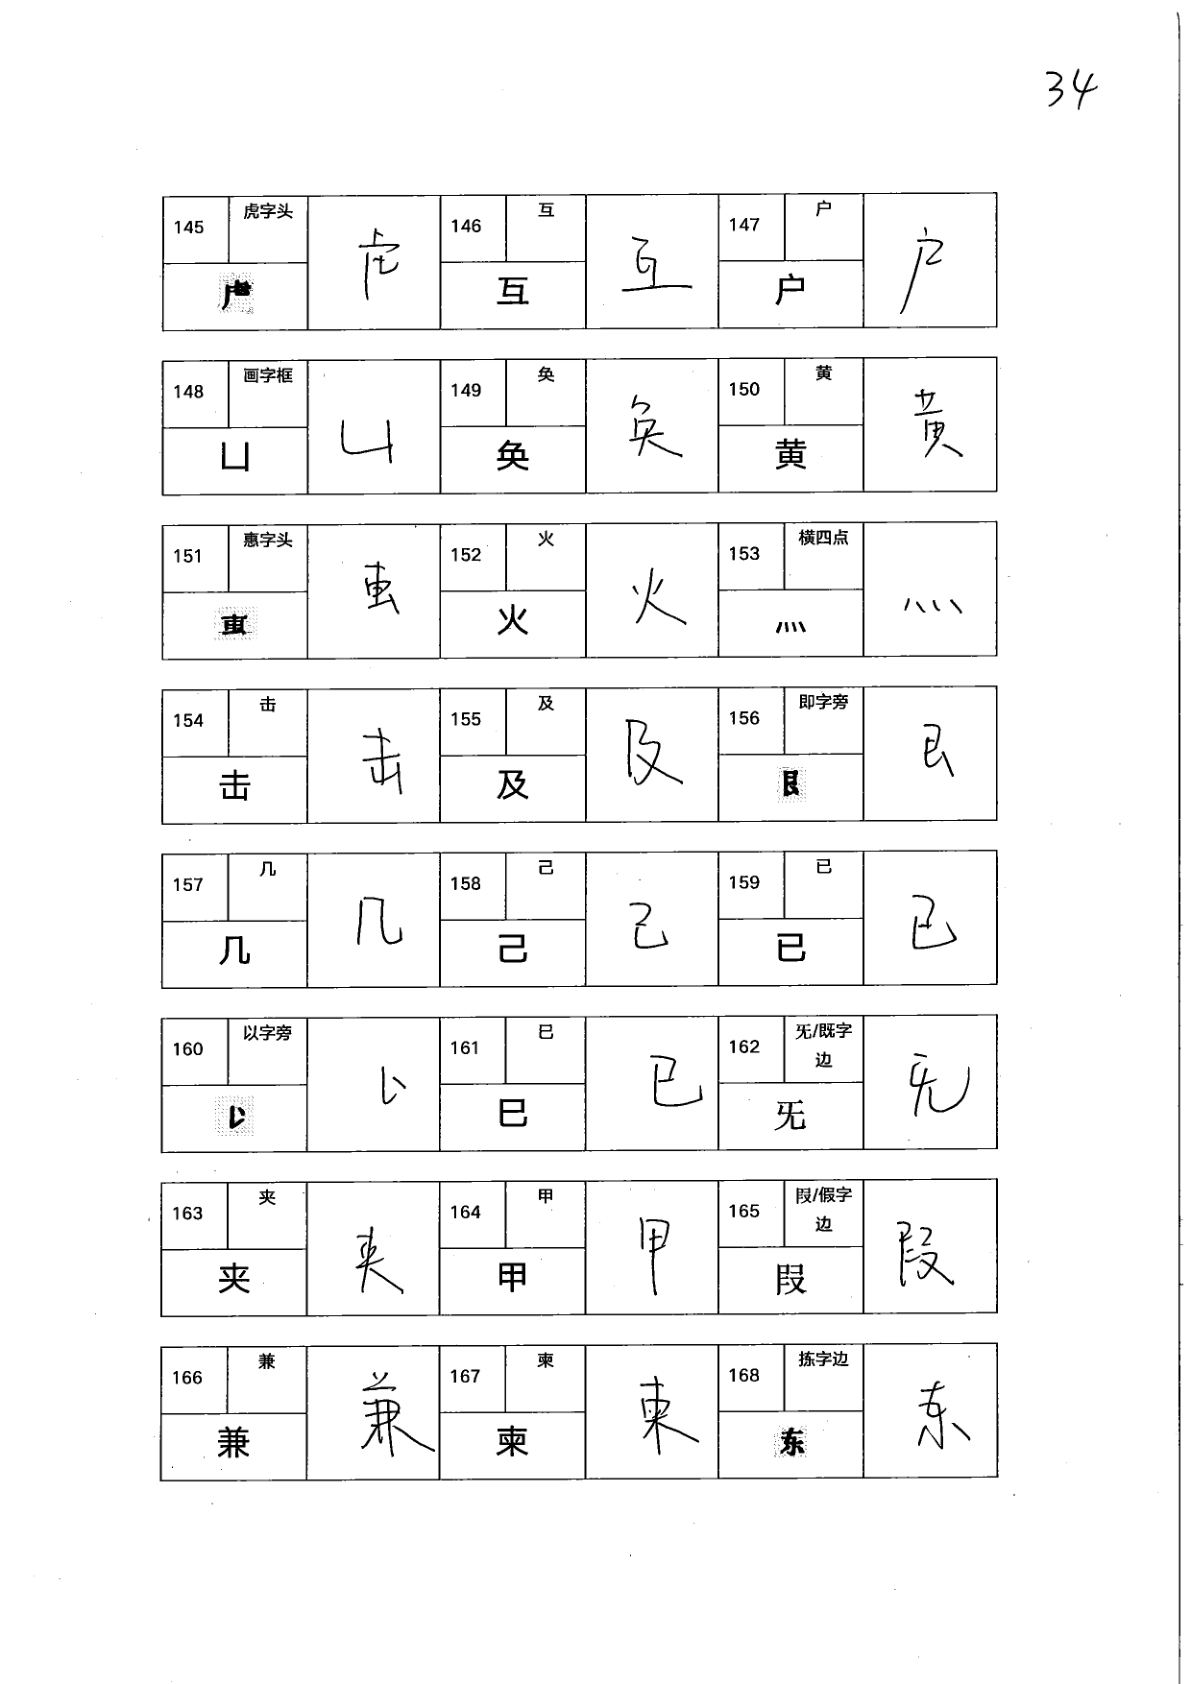 34
145 虎字头 虍 虍 146 互 互 互 147 户 户 户
148 画字框 凵 凵 149 奂 奂 奂 150 黄 黄 黄
151 惠字头 152 火 火 火 153 横四点 灬 灬
154 击 击 击 155 及 及 及 156 即字旁
157 几 几 几 158 己 己 己 159 已 已 已
160 以字旁 161 巳 巳 巳 162 旡/既字边 旡 旡
163 夹 夹 夹 164 甲 甲 甲 165 叚/假字边 叚 叚
166 兼 兼 兼 167 柬 柬 柬 168 拣字边